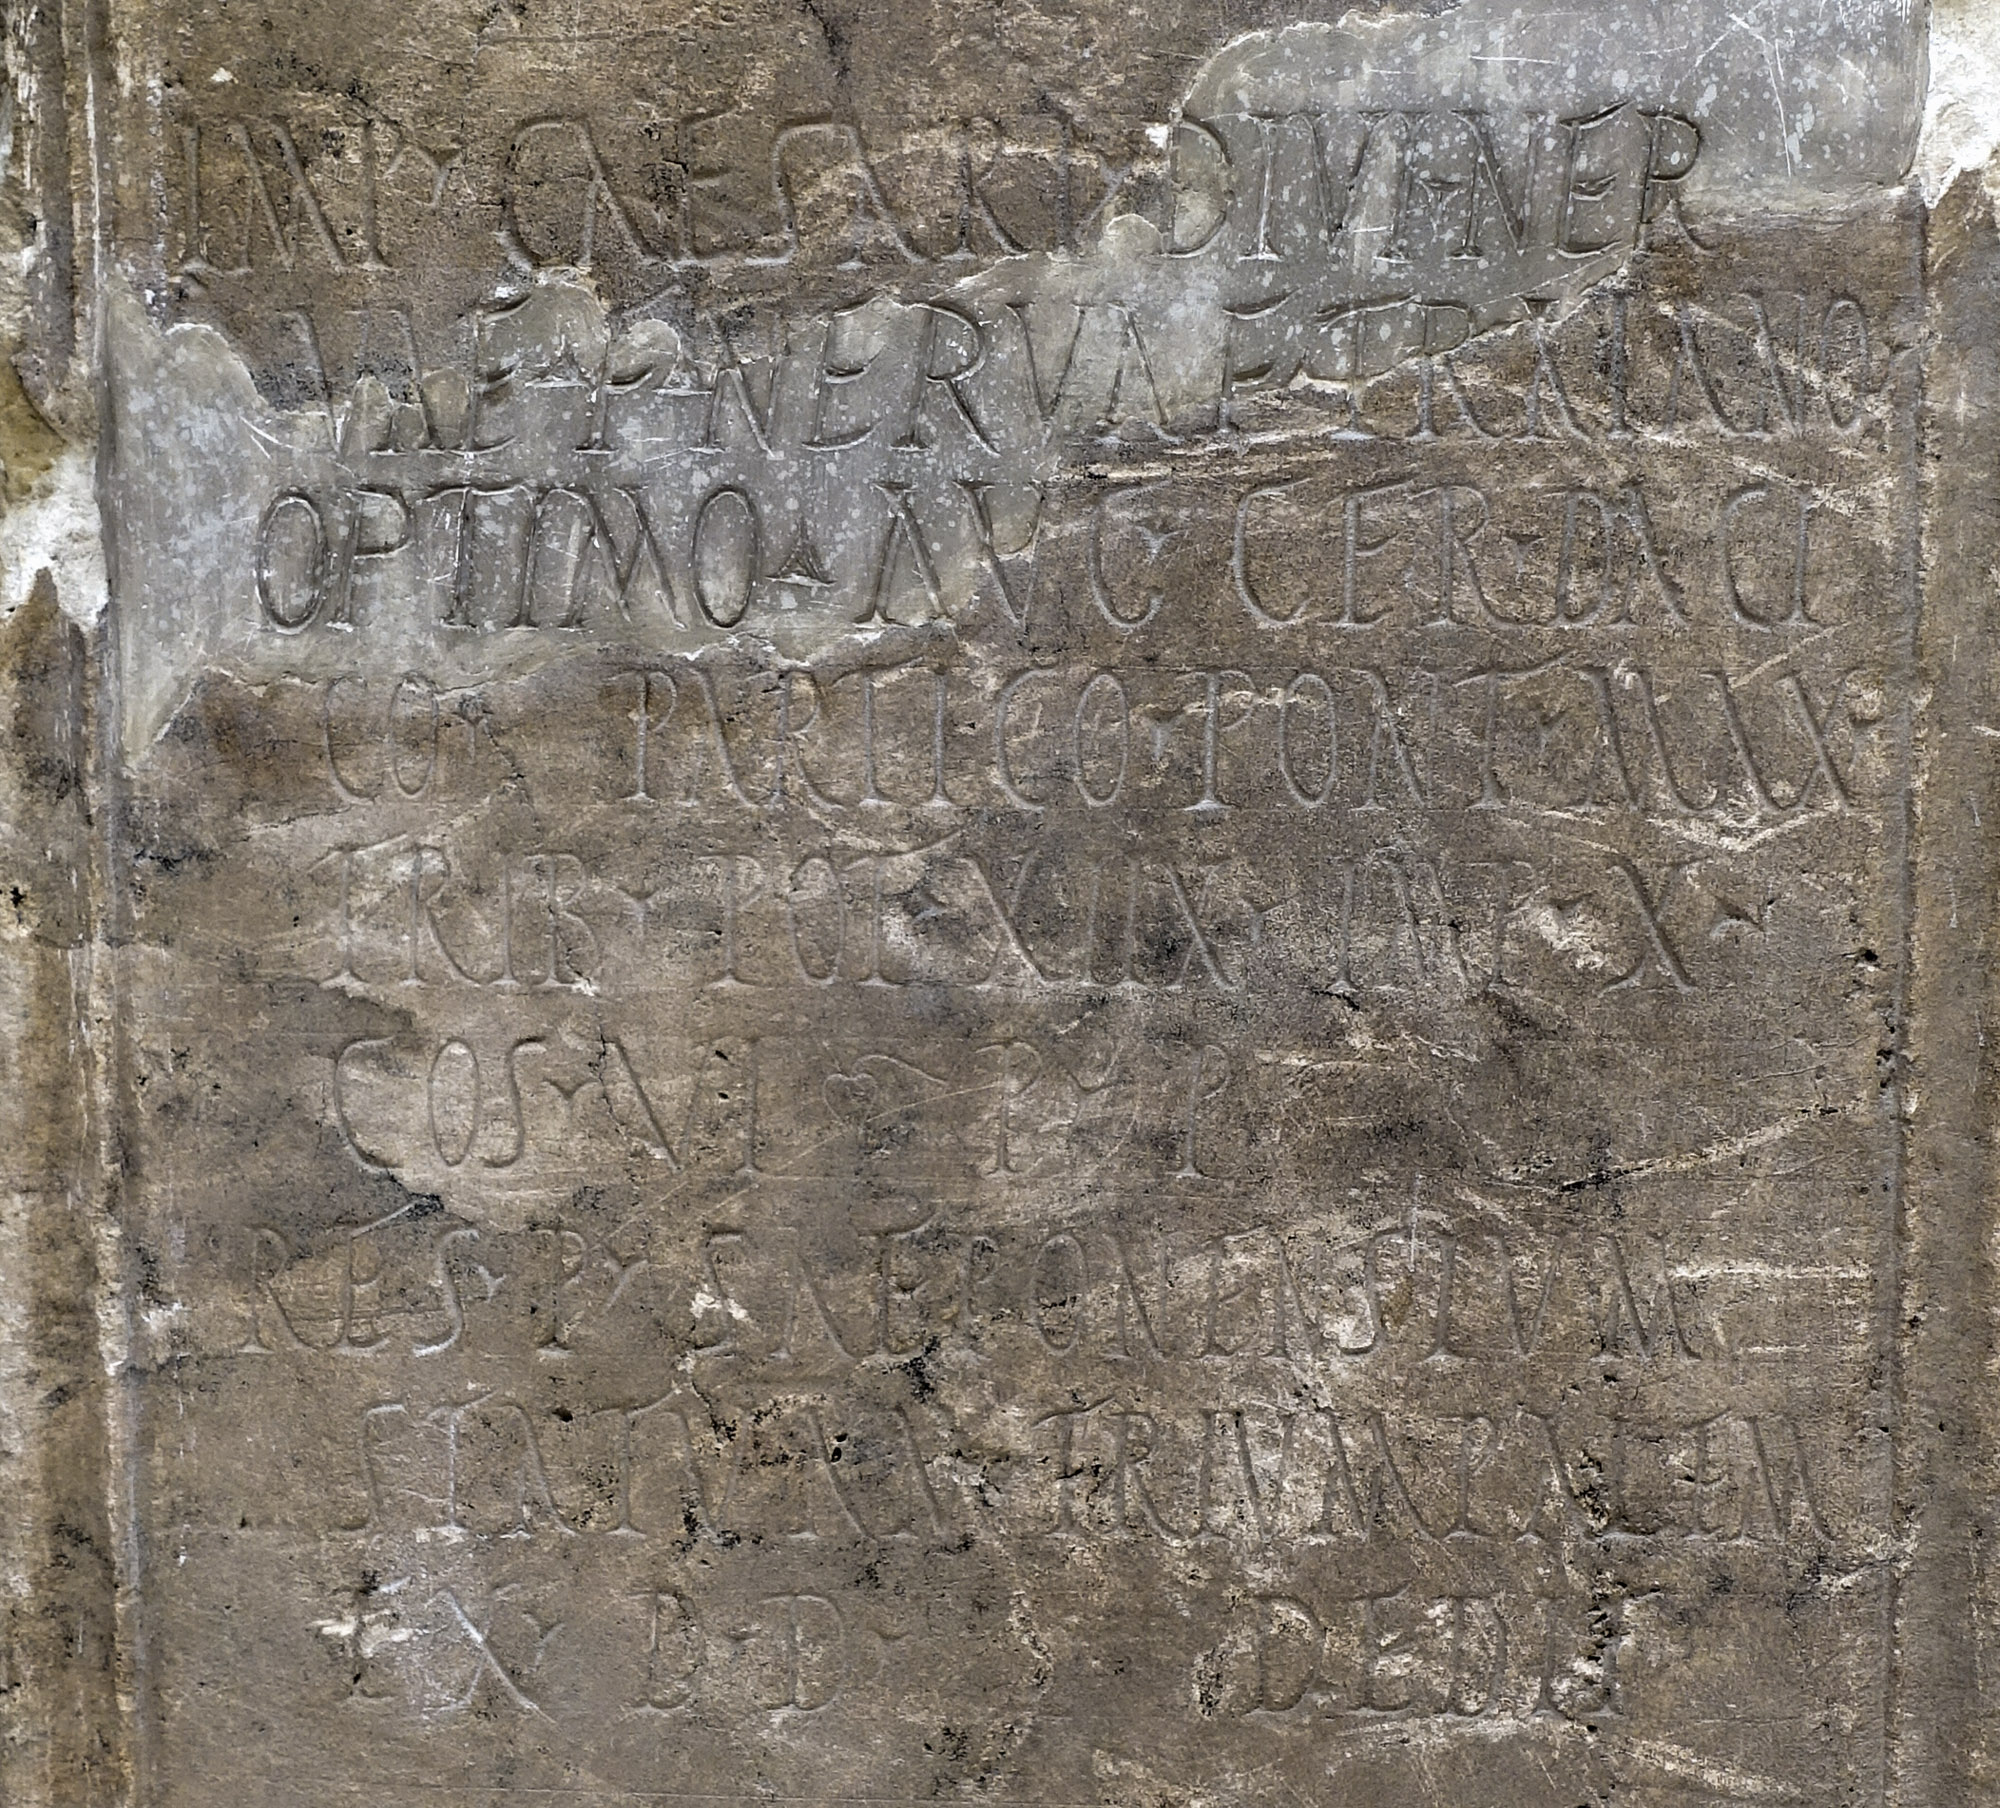 IMP · CAESARI · DIVI · NER
VAE · F · NERVAE · TRAIANO ·
OPTIMO · AVG · GER · DACI
CO · PARTICO · PONT · MAX ·
TRIB · POT · XIIX · IMP · X ·
COS · VI ❦ P · P
RESP · P · SAEPONENSIVM
STATVAM TRIVMPALEM
EX · D · D · DEDIT